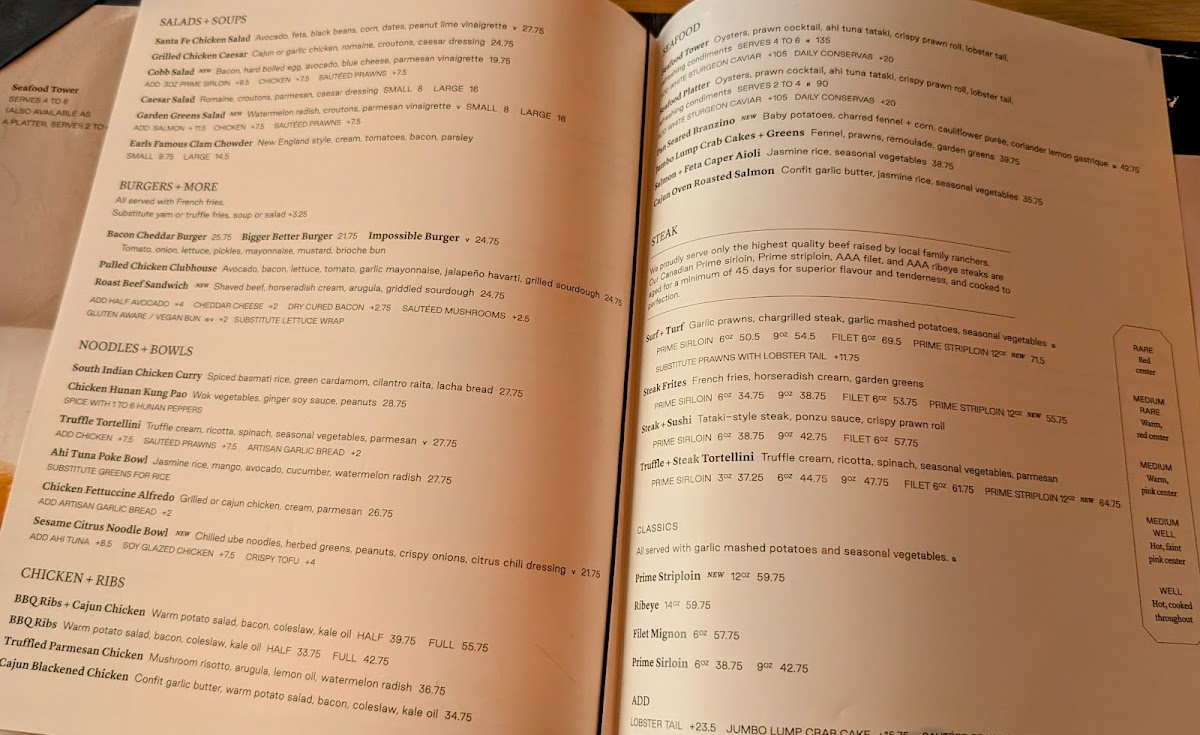 Seafood Tower
SERVES 4 TO 6
(ALSO AVAILABLE AS
A PLATTER, SERVES 2 TO
SALADS + SOUPS
Santa Fe Chicken Salad Avocado, feta, black beans, corn, dates, peanut lime vinaigrette v 27.75
Grilled Chicken Caesar Cajun or garlic chicken, romaine, croutons, caesar dressing 24.75
Cobb Salad NEW Bacon, hard boiled egg, avocado, blue cheese, parmesan vinaigrette 19.75
ADD 3OZ PRIME SIRLOIN +8.5 CHICKEN +7.5 SAUTÉED PRAWNS +7.5
Caesar Salad Romaine, croutons, parmesan, caesar dressing SMALL 8 LARGE 16
Garden Greens Salad NEW Watermelon radish, croutons, parmesan vinaigrette v SMALL 8 LARGE 16
ADD SALMON + 11.5 CHICKEN +7.5 SAUTÉED PRAWNS +7.5
Earls Famous Clam Chowder New England style, cream, tomatoes, bacon, parsley
SMALL 9.75 LARGE 14.5
BURGERS + MORE
All served with French fries.
Substitute yam or truffle fries, soup or salad +3.25
Bacon Cheddar Burger 25.75 Bigger Better Burger 21.75 Impossible Burger v 24.75
Tomato, onion, lettuce, pickles, mayonnaise, mustard, brioche bun
Pulled Chicken Clubhouse Avocado, bacon, lettuce, tomato, garlic mayonnaise, jalapeño havarti, grilled sourdough 24.75
Roast Beef Sandwich NEW Shaved beef, horseradish cream, arugula, griddled sourdough 24.75
ADD HALF AVOCADO +4 CHEDDAR CHEESE +2 DRY CURED BACON +2.75 SAUTÉED MUSHROOMS +2.5
GLUTEN AWARE / VEGAN BUN +2 SUBSTITUTE LETTUCE WRAP
NOODLES + BOWLS
South Indian Chicken Curry Spiced basmati rice, green cardamom, cilantro raita, lacha bread 27.75
Chicken Hunan Kung Pao Wok vegetables, ginger soy sauce, peanuts 28.75
SPICE WITH 1 TO 6 HUNAN PEPPERS
Truffle Tortellini Truffle cream, ricotta, spinach, seasonal vegetables, parmesan v 27.75
ADD CHICKEN +7.5 SAUTÉED PRAWNS +7.5 ARTISAN GARLIC BREAD +2
Ahi Tuna Poke Bowl Jasmine rice, mango, avocado, cucumber, watermelon radish 27.75
SUBSTITUTE GREENS FOR RICE
Chicken Fettuccine Alfredo Grilled or cajun chicken, cream, parmesan 26.75
ADD ARTISAN GARLIC BREAD +2
Sesame Citrus Noodle Bowl NEW Chilled ube noodles, herbed greens, peanuts, crispy onions, citrus chili dressing v 21.75
ADD AHI TUNA +8.5 SOY GLAZED CHICKEN +7.5 CRISPY TOFU +4
CHICKEN + RIBS
BBQ Ribs + Cajun Chicken Warm potato salad, bacon, coleslaw, kale oil HALF 39.75 FULL 55.75
BBQ Ribs Warm potato salad, bacon, coleslaw, kale oil HALF 33.75 FULL 42.75
Truffled Parmesan Chicken Mushroom risotto, arugula, lemon oil, watermelon radish 36.75
Cajun Blackened Chicken Confit garlic butter, warm potato salad, bacon, coleslaw, kale oil 34.75
SEAFOOD
Seafood Tower Oysters, prawn cocktail, ahi tuna tataki, crispy prawn roll, lobster tail,
condiments SERVES 4 TO 6 135
WHITE STURGEON CAVIAR +105 DAILY CONSERVAS +20
Seafood Platter Oysters, prawn cocktail, ahi tuna tataki, crispy prawn roll, lobster tail,
condiments SERVES 2 TO 4 90
WHITE STURGEON CAVIAR +105 DAILY CONSERVAS +20
Seared Branzino NEW Baby potatoes, charred fennel + corn, cauliflower purée, coriander lemon gastrique 42.75
Jumbo Lump Crab Cakes + Greens Fennel, prawns, remoulade, garden greens 39.75
Salmon + Feta Caper Aioli Jasmine rice, seasonal vegetables 38.75
Cajun Oven Roasted Salmon Confit garlic butter, jasmine rice, seasonal vegetables 36.75
STEAK
We proudly serve only the highest quality beef raised by local family ranchers.
Our Canadian Prime sirloin, Prime striploin, AAA filet, and AAA ribeye steaks are
aged for a minimum of 45 days for superior flavour and tenderness, and cooked to
perfection.
Surf + Turf Garlic prawns, chargrilled steak, garlic mashed potatoes, seasonal vegetables
PRIME SIRLOIN 6oz 50.5 9oz 54.5 FILET 6oz 69.5 PRIME STRIPLOIN 12oz NEW 71.5
SUBSTITUTE PRAWNS WITH LOBSTER TAIL +11.75
Steak Frites French fries, horseradish cream, garden greens
PRIME SIRLOIN 6oz 34.75 9oz 38.75 FILET 6oz 53.75 PRIME STRIPLOIN 12oz NEW 55.75
Steak + Sushi Tataki-style steak, ponzu sauce, crispy prawn roll
PRIME SIRLOIN 6oz 38.75 9oz 42.75 FILET 6oz 57.75
Truffle + Steak Tortellini Truffle cream, ricotta, spinach, seasonal vegetables, parmesan
PRIME SIRLOIN 3oz 37.25 6oz 44.75 9oz 47.75 FILET 6oz 61.75 PRIME STRIPLOIN 12oz NEW 64.75
CLASSICS
All served with garlic mashed potatoes and seasonal vegetables.
Prime Striploin NEW 12oz 59.75
Ribeye 14oz 59.75
Filet Mignon 6oz 57.75
Prime Sirloin 6oz 38.75 9oz 42.75
ADD
LOBSTER TAIL +23.5 JUMBO LUMP CRAB CAKE
RARE
Red
center
MEDIUM
RARE
Warm,
red center
MEDIUM
Warm,
pink center
MEDIUM
WELL
Hot, faint
pink center
WELL
Hot, cooked
throughout